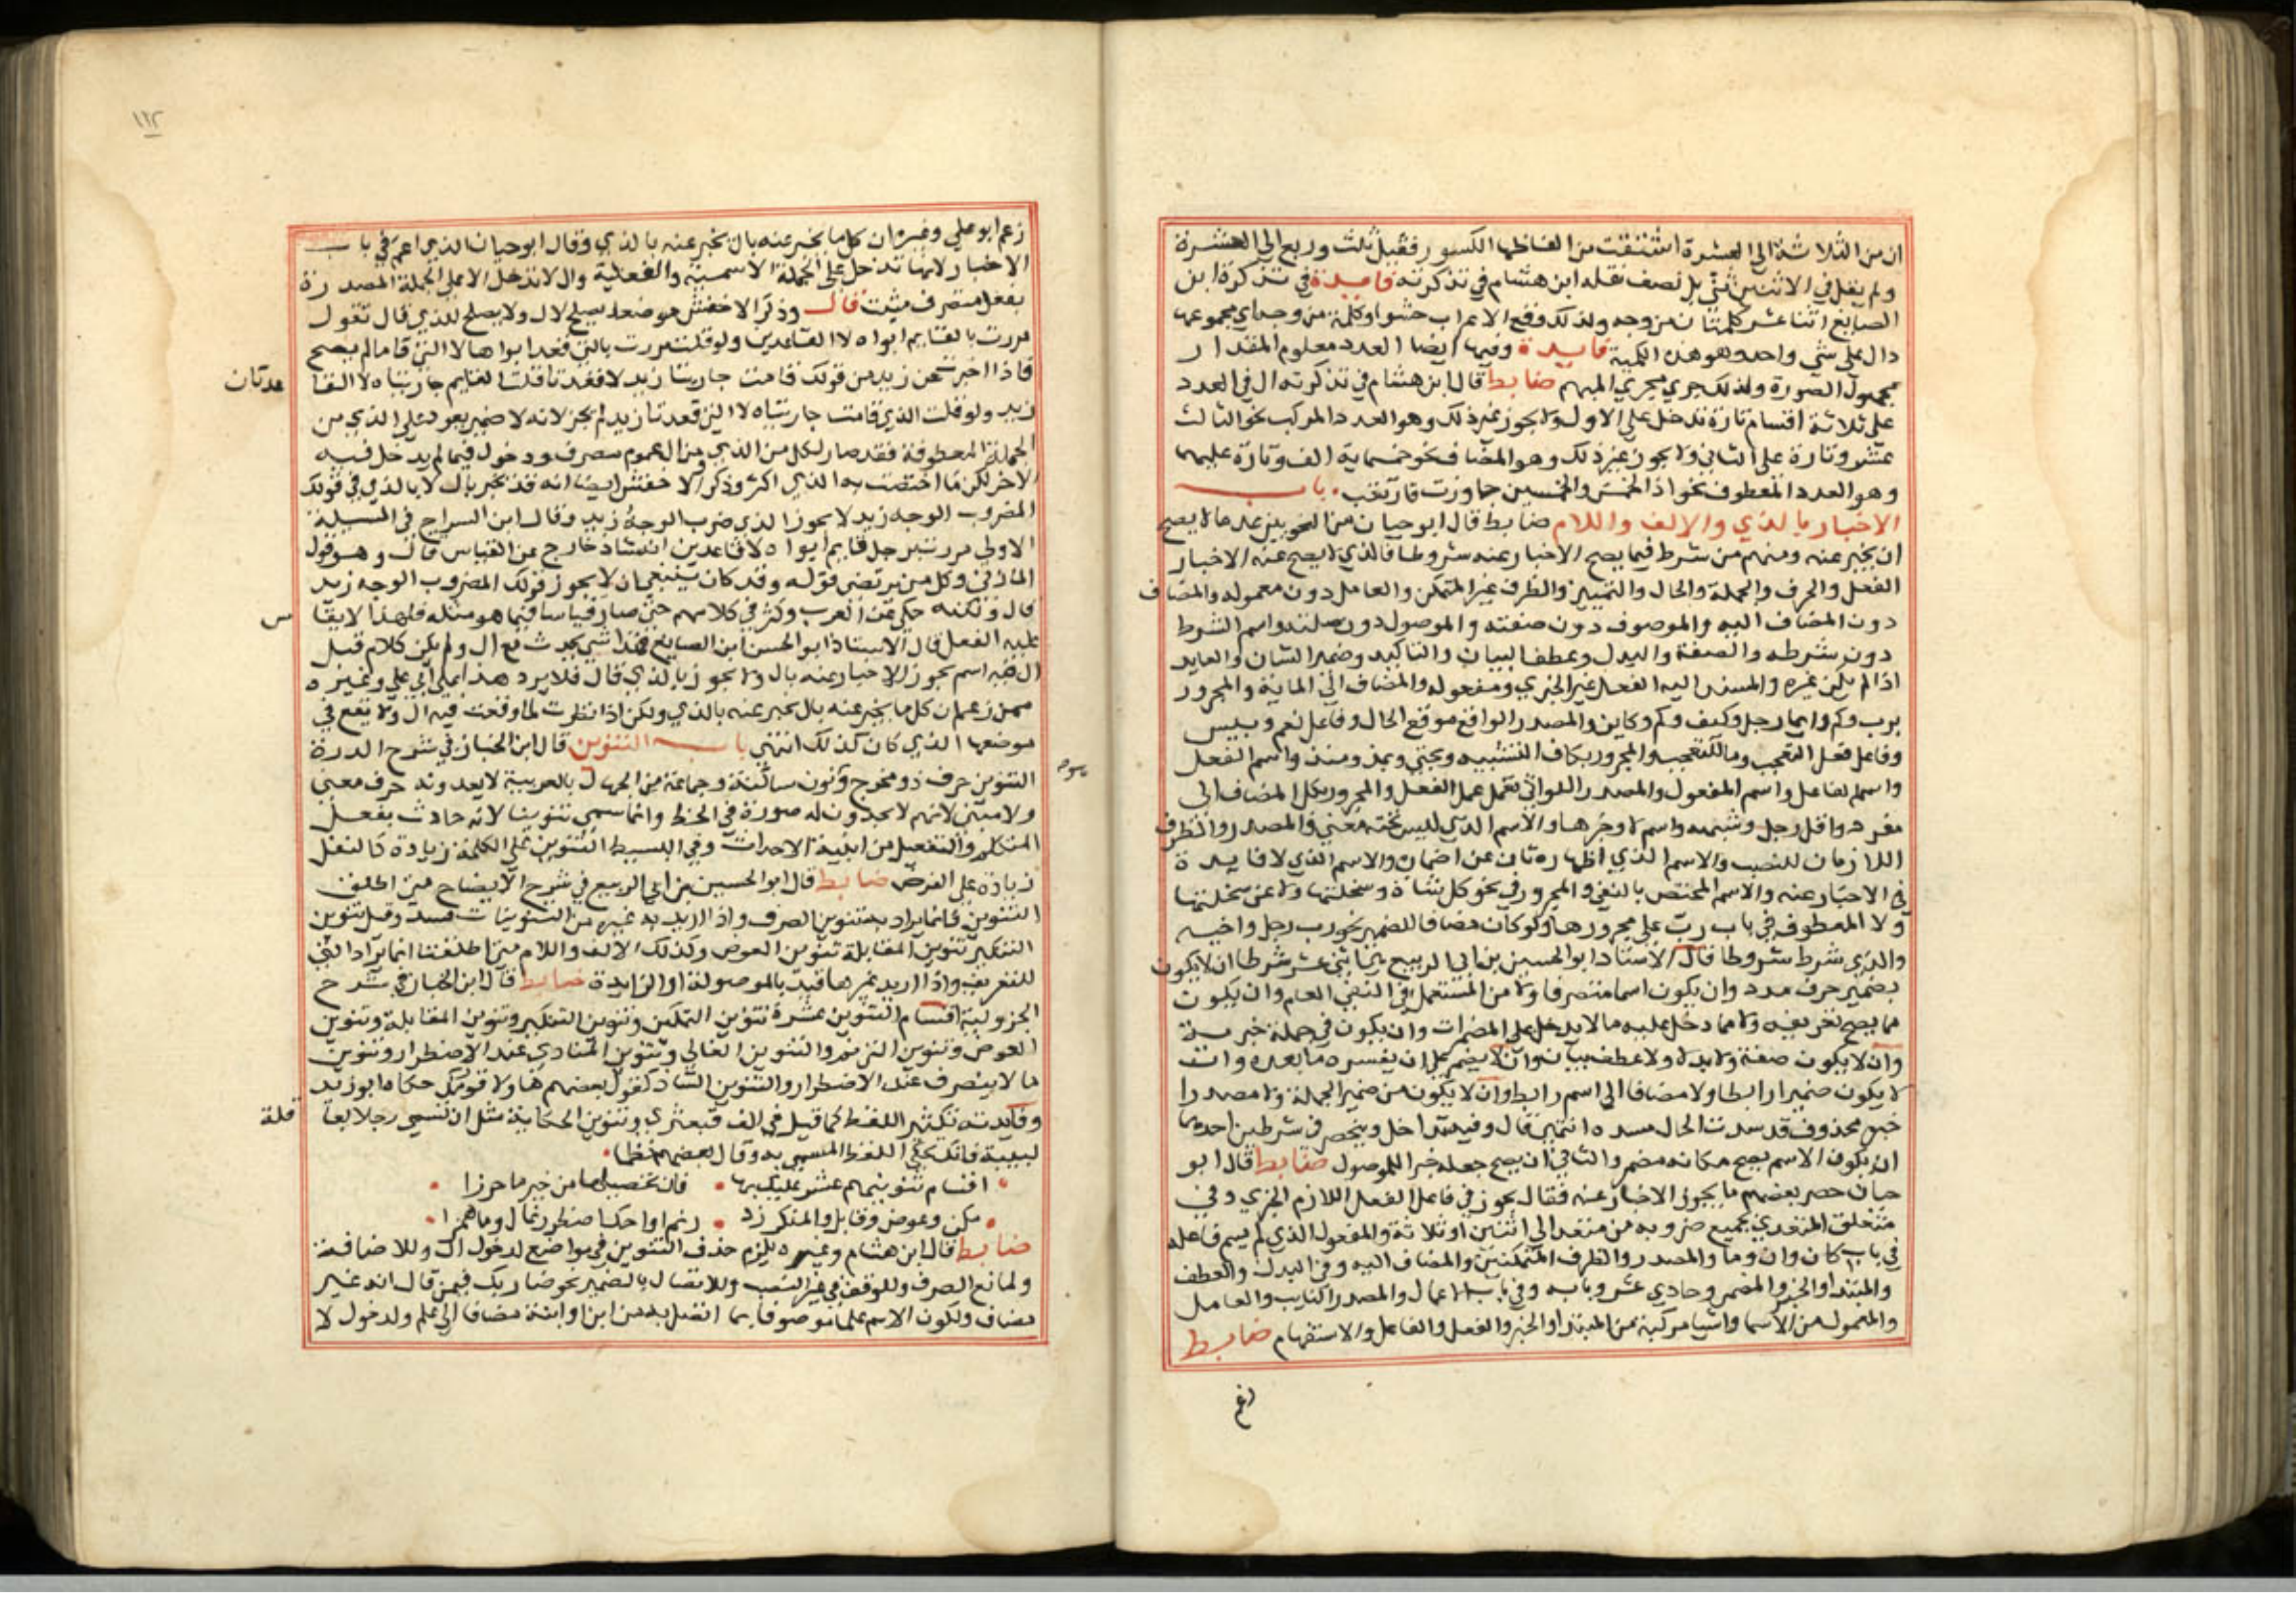 ان من الثلاثة الي العشرة اشتقت من الفاظها الكسور فقيل ثلث وربع الي العشرة
ولم يقل في الاثنين ثني بل نصف نقله ابن هشام في تذكرته فايدة في تذكرة ابن
الصايغ اثنا عشر كلمتان من وجه ولذلك وقع الاعراب حشوا وكلمة من وجه اي مجموعها
دال علي شي واحد وهو هذه الكمية فايدة وفيها ايضا العدد معلوم المقدار
مجهول الصورة ولذلك جري مجري المبهم ضابط قال ابن هشام في تذكرته ال في العدد
علي ثلاثة اقسام تارة تدخل علي الاول ولا يجوز غير ذلك وهو العدد المركب نحو الثالث
عشر وتارة علي الثاني ولا يجوز غير ذلك وهو المضاف نحو خمسماية الف وتارة عليهما
وهو العدد المعطوف نحو اذا الخمس والخمسين جاوزت فارتقب باب
الاخبار بالذي والالف واللام ضابط قال ابو حيان من النحويين عد ما لا يصح
ان يخبر عنه ومنهم من شرط فيما يصح الاخبار عنه شروطا فالذي لا يصح عنه الاخبار
الفعل والحرف والجملة والحال والتمييز والظرف غير المتمكن والعامل دون معموله والمضاف
دون المضاف اليه والموصوف دون صفته والموصول دون صلته واسم الشرط
دون شرطه والصفة والبدل وعطف البيان والتاكيد وضمير الشان والعايد
اذا لم يكن غيره والمسند اليه الفعل غير الخبري ومفعوله والمضاف الي الماية والمجرور
برب وكم وايما رجل وكيف وكم وكاين والمصدر الواقع موقع الحال وفاعل نعم وبيس
وفاعل فعل التعجب وما للتعجب والمجرور بكاف التشبيه وبحتي وبمذ ومنذ واسم الفعل
واسم الفاعل واسم المفعول والمصدر اللواتي تعمل عمل الفعل والمجرور بكل المضاف الي
مفرد واقل رجل وشبهه واسم لا وخبرها والاسم الذي ليس تحته معني والمصدر والظرف
اللازمان للنصب والاسم الذي اظهاره ثان عن اضمار والاسم الذي لا فايدة
في الاخبار عنه والاسم المختص بالنفي والمجرور في نحو كل شاة وسخلتها ولا عن سخلتها
ولا المعطوف في باب رب علي مجرورها ولو كان مضافا للضمير نحو رب رجل واخيه
والذي شرط شروطا قال الاستاذ ابو الحسين بن ابي الربيع اثني عشر شرطا ان لا يكون
بضمير حرف مدد وان يكون اسما متصرفا ولا من المستعمل في النفي العام وان يكون
مما يصح تعريفه ولا مما دخل عليه ما لا يدخل علي المضمرات وان يكون في جملة خبرية
وان لا يكون صفة ولا بدلا ولا عطف بيان وان لا يضمر قبل ان يفسره ما بعده وان
لا يكون ضميرا رابطا ولا مضافا الي اسم رابط وان لا يكون من ضمير الجملة ولا مصدرا
خبره محذوف قد سدت الحال مسده انتهي قال وفيه تداخل وينحصر في شرطين احدهما
ان يكون الاسم يصح مكانه مضمر والثاني ان يصح جعله خبرا للموصول ضابط قال ابو
حيان حصر بعضهم ما يجوز الاخبار عنه فقال يجوز في فاعل الفعل اللازم الخبري وفي
متعلق المتعدي بجميع ضروبه من متعد الي اثنين او ثلاثة والمفعول الذي لم يسم فاعله
في باب كان وان وما والمصدر والظرف المتمكنين والمضاف اليه وفي البدل والعطف
والمبتدا والخبر والمضمر وحادي عشر وبابه وفي باب الاعمال والمصدر النايب والعامل
والمعمول من الاسما واشيا مركبة من المبتدا والخبر والفعل والفاعل والاستفهام ضابط
زعم
١١٢
زعم ابو علي وغيره ان كل ما يخبر عنه بال يخبر عنه بالذي وقال ابو حيان الذي اعم في باب
الاخبار لانها تدخل علي الجملة الاسمية والفعلية وال لا تدخل الا علي الجملة المصدرة
بفعل متصرف مثبت قال وذكر الاخفش موضعا يصلح لال ولا يصلح للذي قال تقول
مررت بالقايم ابواه لا القاعدين ولو قلت مررت بالتي قعد ابواها لا التي قاما لم يصح
فاذا اخبرت عن زيد من قولك قامت جاريتا زيد لا قعدتا قلت القايم جاريتاه لا القا
عدتان
زيد ولو قلت الذي قامت جاريتاه لا التي قعدتا زيد لم يجز لانه لا ضمير يعود علي الذي من
الجملة المعطوفة فقد صار لكل من الذي من العموم تصرف ودخول فيما لم يدخل فيه
الاخر لكن ما اختصت به الذي اكثر وذكر الاخفش ايضا انه قد تخبر بال لا بالذي في قولك
المضروب الوجه زيد لا يجوز الذي ضرب الوجه زيد وقال ابن السراج في المسيلة
الاولي مررت برجل قايم ابواه لا قاعدين انه شاذ خارج عن القياس قال وهو قول
المازني وكل من يرتضي قوله وقد كان ينبغي ان لا يجوز قولك المضروب الوجه زيد
قال ولكنه حكي عن العرب وكثر في كلامهم حتي صار قياسا فيما هو مثله فلهذا لا يقا
س
عليه الفعل قال الاستاذ ابو الحسن ابن الصايغ فهذا شي يحدث مع ال ولم يكن كلام قبل
ال فيه اسم يجوز الاخبار عنه بال ولا يجوز بالذي قال فلا يرد هذا علي ابي علي وغيره
ممن زعم ان كل ما يخبر عنه بال يخبر عنه بالذي ولكن اذا نظرت لما وقعت فيه ال ولا تقع في
موضعها الذي كان كذلك انتهي باب التنوين قال ابن الخباز في شرح الدرة
التنوين حرف ذو مخرج ونون ساكنة وجماعة من الجهال بالعربية لا يعدونه حرف معني
ولا مبني لانهم لا يجدون له صورة في الخط وانما سمي تنوينا لانه حادث بفعل
المتكلم والتفعيل من ابنية الاحداث وفي البسيط التنوين علي الكلمة زيادة كالنفل
زيادة علي الفرض ضابط قال ابو الحسين بن ابي الربيع في شرح الايضاح متي اطلق
التنوين فانما يراد به تنوين الصرف واذا اريد به غيره من التنوينات قيد وقيل تنوين
التنكير تنوين المقابلة تنوين العوض وكذلك الالف واللام متي اطلقتا انما يراد التي
للتعريف واذا اريد غيرها قيدت بالموصولة او الزايدة ضابط قال ابن الخباز في شرح
الجزولية اقسام التنوين عشرة تنوين التمكن وتنوين التنكير وتنوين المقابلة وتنوين
العوض وتنوين الترنم والتنوين الغالي وتنوين المنادي عند الاضطرار وتنوين
ما لا ينصرف عند الاضطرار والتنوين الشاذ كقول بعضهم هاولا قومك حكاه ابو زيد
وفايدته تكثير اللفظ كما قيل في الف قبعثري وتنوين الحكاية مثل ان تسمي رجلا بعا
قلة
لبيبة فانك تحكي اللفظ المسمي به وقال بعضهم نظما
اقسام تنوينهم عشر عليك بها فان تحصيلها من خير ما حرزا
مكن وعوض وقابل والمنكر زد رنم او احك اضطرر غال وما همزا
ضابط قال ابن هشام وغيره يلزم حذف التنوين في مواضع لدخول ال وللاضافة
ولمانع الصرف وللوقف في غير النصب وللاتصال بالضمير نحو ضاربك فيمن قال انه غير
مضاف ولكون الاسم علما موصوفا بما اتصل به من ابن او ابنة مضافا الي علم ولدخول لا